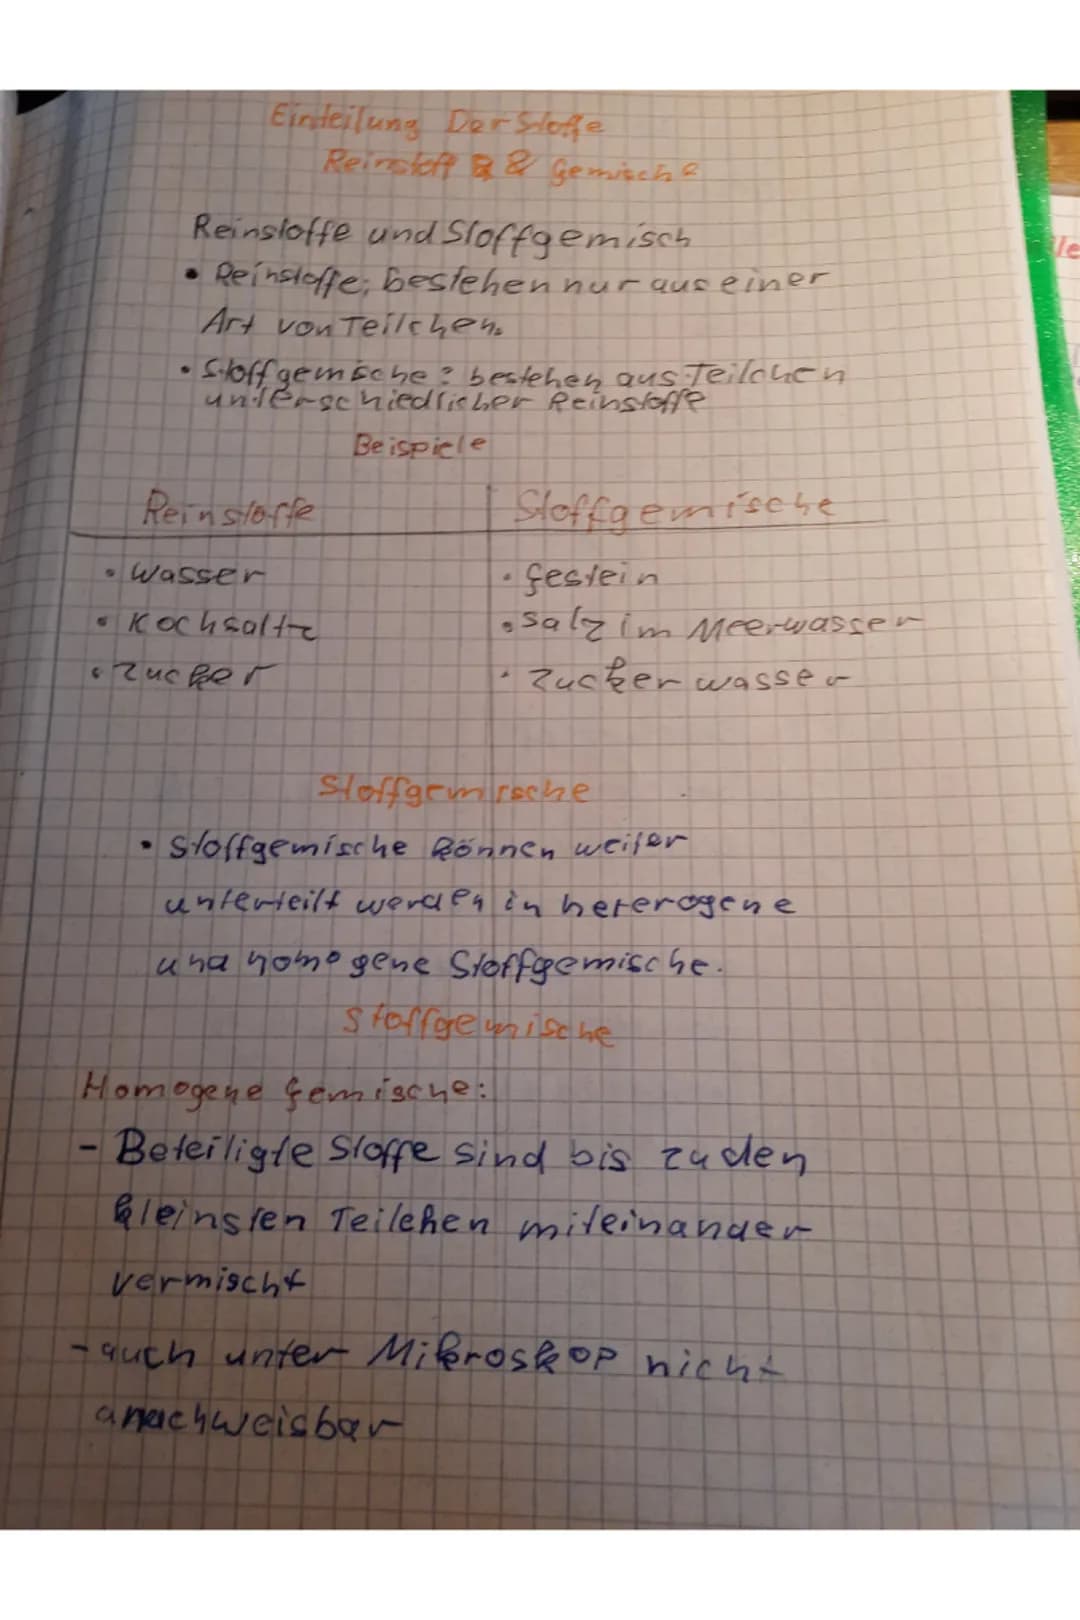 Einteilung Der Stoffe
Reinstoff & Gemische
Reinstoffe und Stoffgemisch
• Reinstoffe: bestehen nur aus einer
Art von Teilchen.
• Stoffgemische: bestehen aus Teilchen
unterschiedlicher Reinstoffe
Beispiele
Reinstoffe Stoffgemische
• Wasser • Gestein
• Kochsaltz • Salz im Meerwasser
• Zucker • Zuckerwasser
Stoffgemische
• Stoffgemische können weiter
unterteilt werden in heterogene
und homogene Stoffgemische.
Stoffgemische
Homogene Gemische:
- Beteiligte Stoffe sind bis zu den
kleinsten Teilchen miteinander
vermischt
- auch unter Mikroskop nicht
nachweisbar